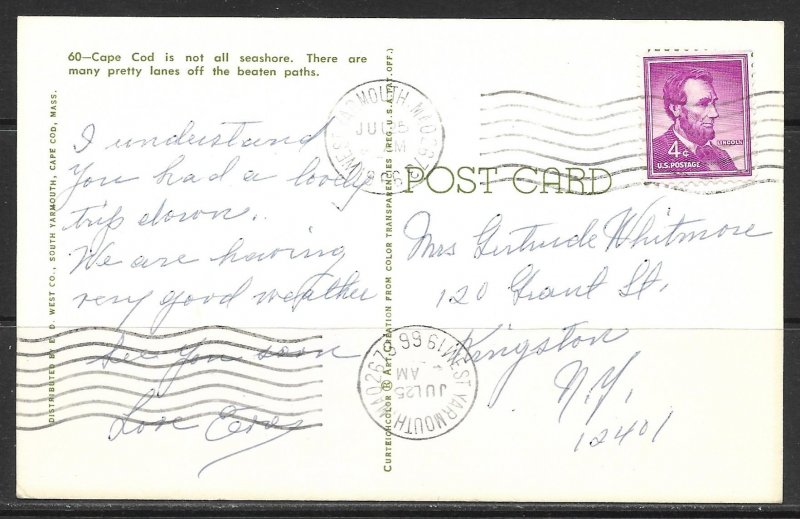 60—Cape Cod is not all seashore. There are
many pretty lanes off the beaten paths.
I understand
You had a lovely
trip down..
We are having
very good weather
See You soon
Love
DISTRIBUTED BY E. D. WEST CO., SOUTH YARMOUTH, CAPE COD, MASS.
CURTEICHCOLOR ® ART CREATION FROM COLOR TRANSPARENCIES (REG. U.S.A. PAT. OFF.)
POST CARD
WEST YARMOUTH, MA
JUL 25
AM
1966
4¢
LINCOLN
U.S. POSTAGE
Mrs Gertrude Whitmore
120 Grant St,
Kingston
N.Y,
12401
WEST YARMOUTH, MA 02673
JUL 25
AM
1966